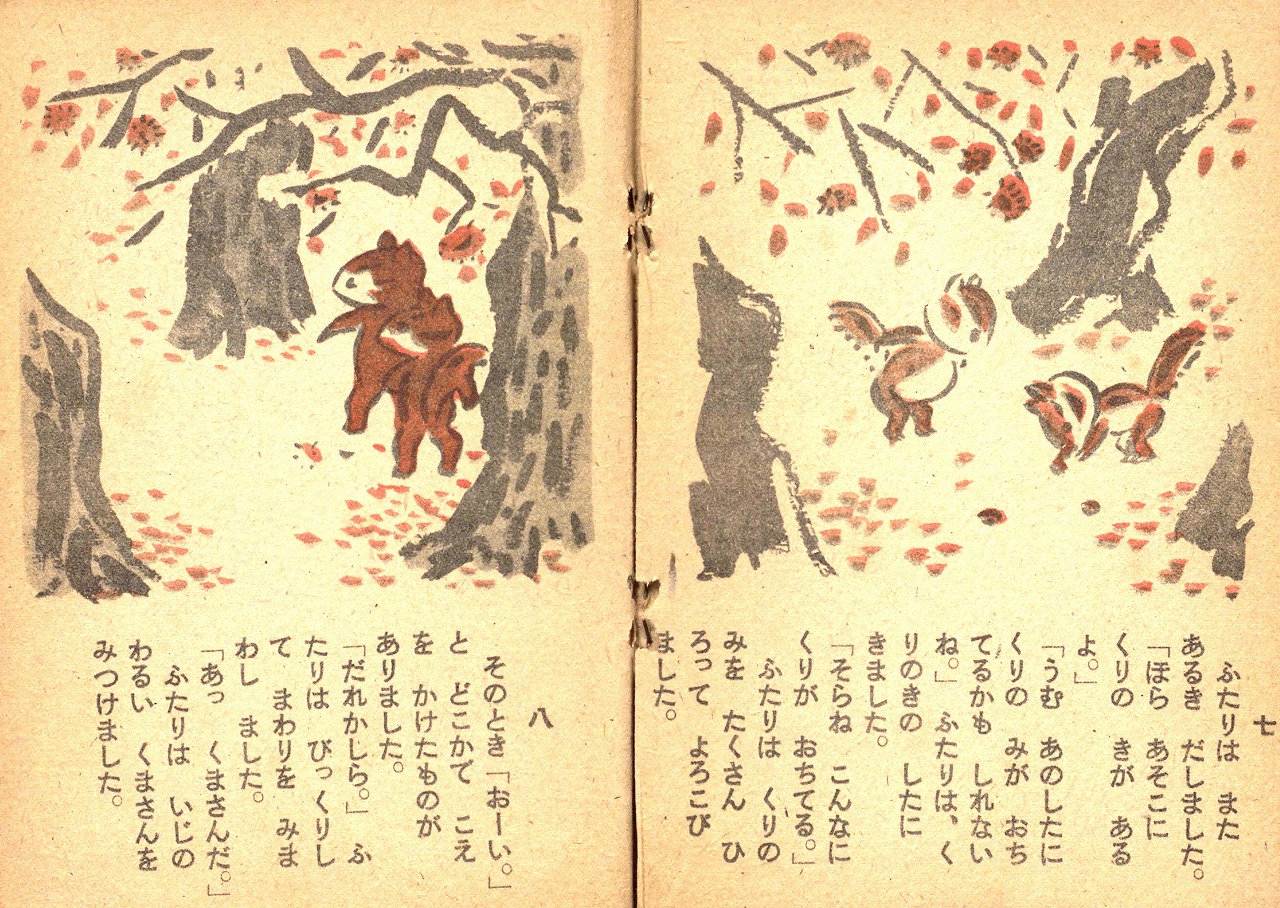 七
ふたりは　また
あるき　だしました。
「ほら　あそこに
くりの　きが　ある
よ。」
「うむ　あのしたに
くりの　みが　おち
てるかも　しれない
ね。」　ふたりは、く
りのきの　したに
きました。
「そらね　こんなに
くりが　おちてる。」
ふたりは　くりの
みを　たくさん　ひ
ろって　よろこび
ました。
八
そのとき「おーい。」
と　どこかで　こえ
を　かけたものが
ありました。
「だれかしら。」　ふ
たりは　びっくりし
て　まわりを　みま
わし　ました。
「あっ　くまさんだ。」
ふたりは　いじの
わるい　くまさんを
みつけました。